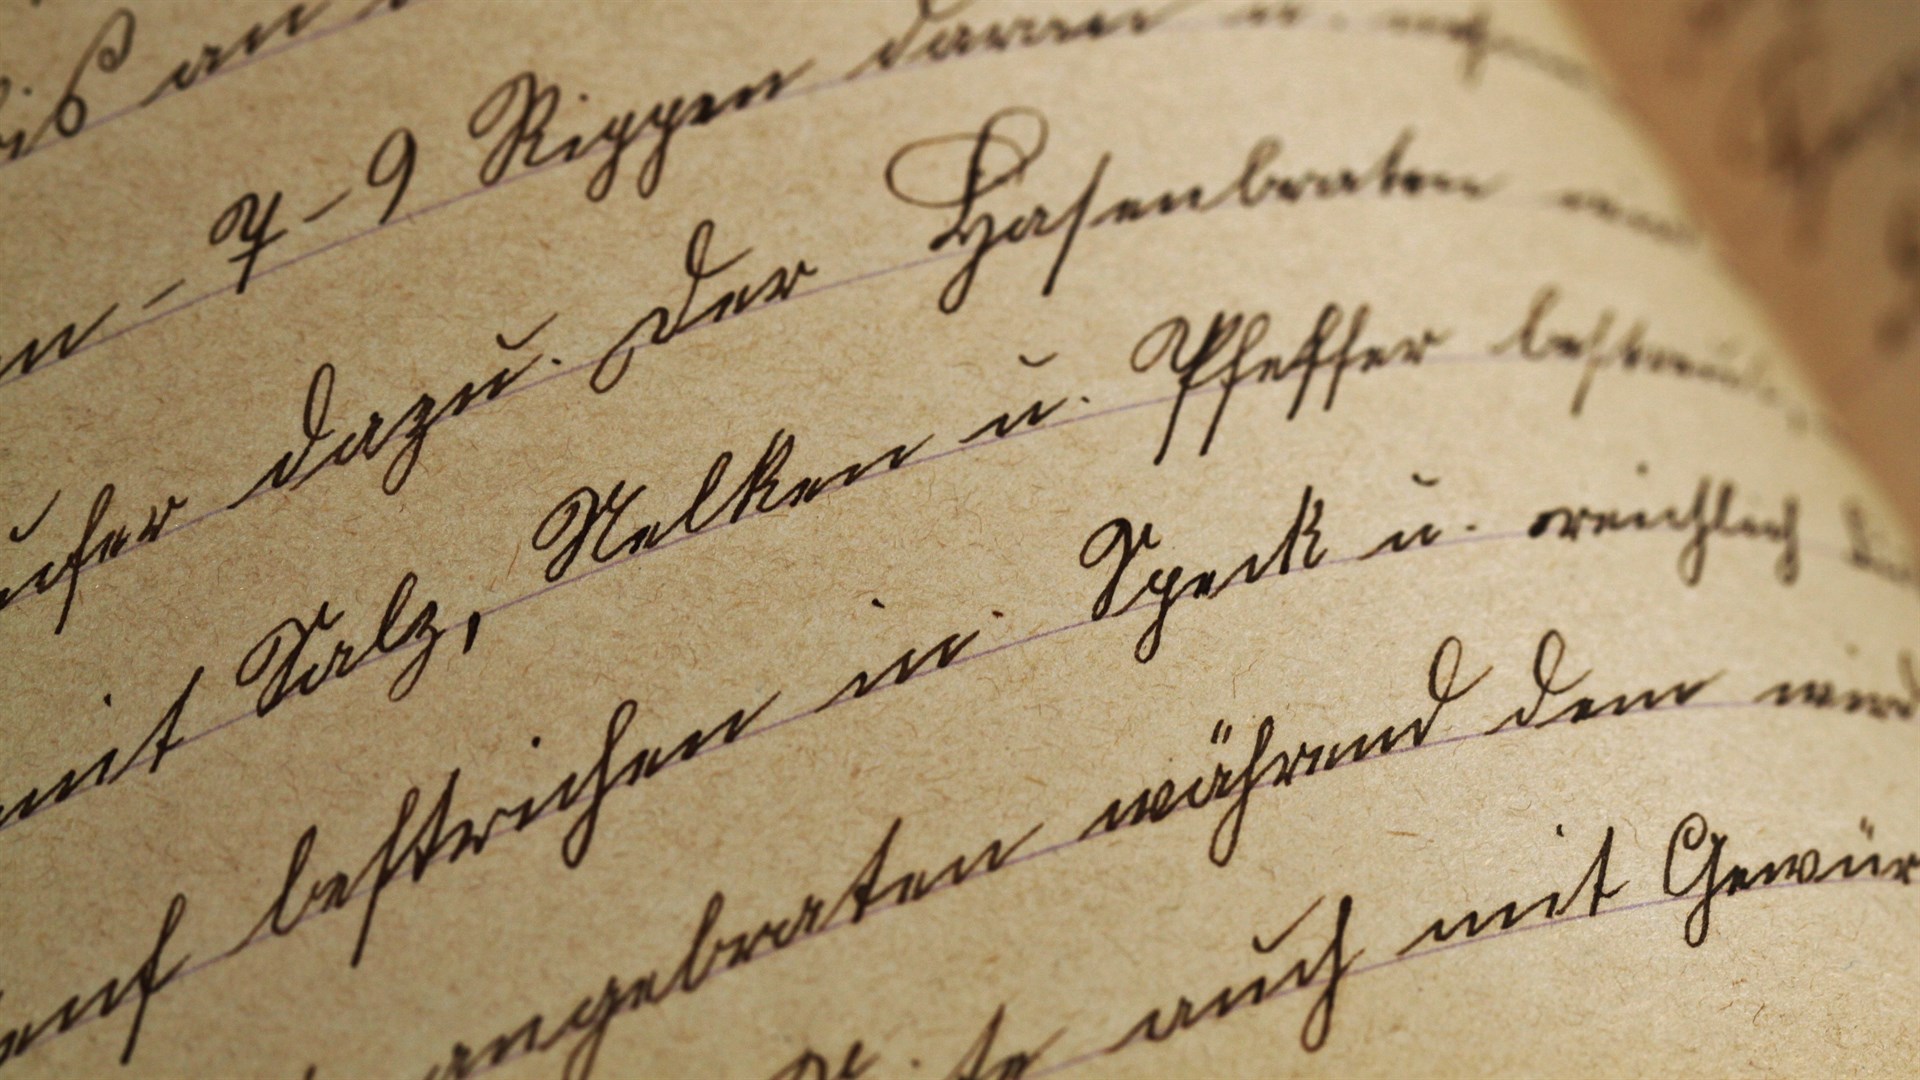 bis an
n - 7 - 9 Rippen daran u.
ufer dazu. Der Hasenbraten
mit Salz, Nelken u. Pfeffer bestreut
enf bestrichen in Speck u. reichlich
angebraten während dem wird
te auch mit Gewür